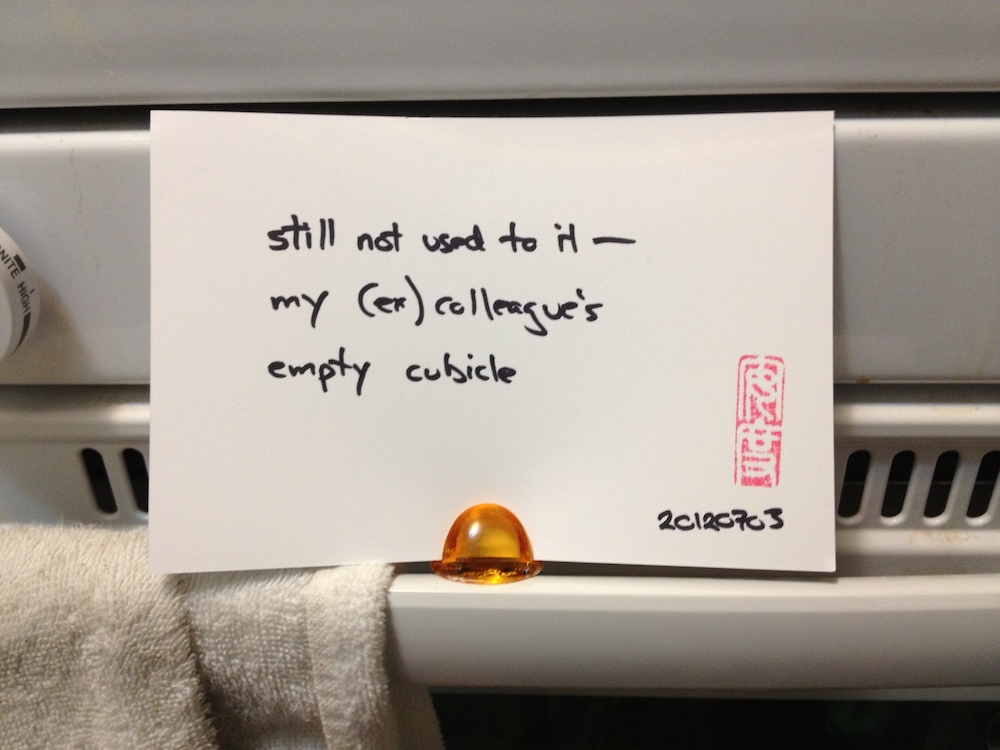 still not used to it —
my (ex) colleague's
empty cubicle
20120703
HIGH